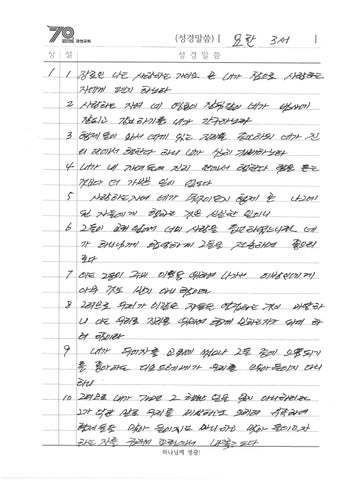 70 과천교회
(성경말씀) [ 요한 3서 ]
장 절 성 경 말 씀
1 1 장로인 나는 사랑하는 가이오 곧 내가 참으로 사랑하는
자에게 편지 하노라
2 사랑하는 자여 네 영혼이 잘됨같이 네가 범사에
잘되고 강건하기를 내가 간구하노라
3 형제들이 와서 네게 있는 진리를 증언하되 네가 진
리 안에서 행한다 하니 내가 심히 기뻐하노라
4 내가 내 자녀들이 진리 안에서 행한다 함을 듣는
것보다 더 기쁜 일이 없도다
5 사랑하는 자여 네가 무엇이든지 형제 곧 나그네
된 자들에게 행하는 것은 신실한 일이니
6 그들이 교회 앞에서 너의 사랑을 증언하였느니라 네
가 하나님께 합당하게 그들을 전송하면 좋으리
로다
7 이는 그들이 주의 이름을 위하여 나가서 이방인에게
아무 것도 받지 아니함이라
8 그러므로 우리가 이같은 자들을 영접하는 것이 마땅하
니 이는 우리로 진리를 위하여 함께 일하는 자가 되게 하
려 함이라
9 내가 두어자를 교회에 썼으나 그들 중에 으뜸되기
를 좋아하는 디오드레베가 우리를 맞아들이지 아니
하니
10 그러므로 내가 가면 그 행한 일을 잊지 아니하리라
그가 악한 말로 우리를 비방하고도 오히려 부족하여
형제들을 맞아 들이지도 아니하고 맞아 들이고자
하는 자를 교회에서 내쫓는도다
하나님께 영광!